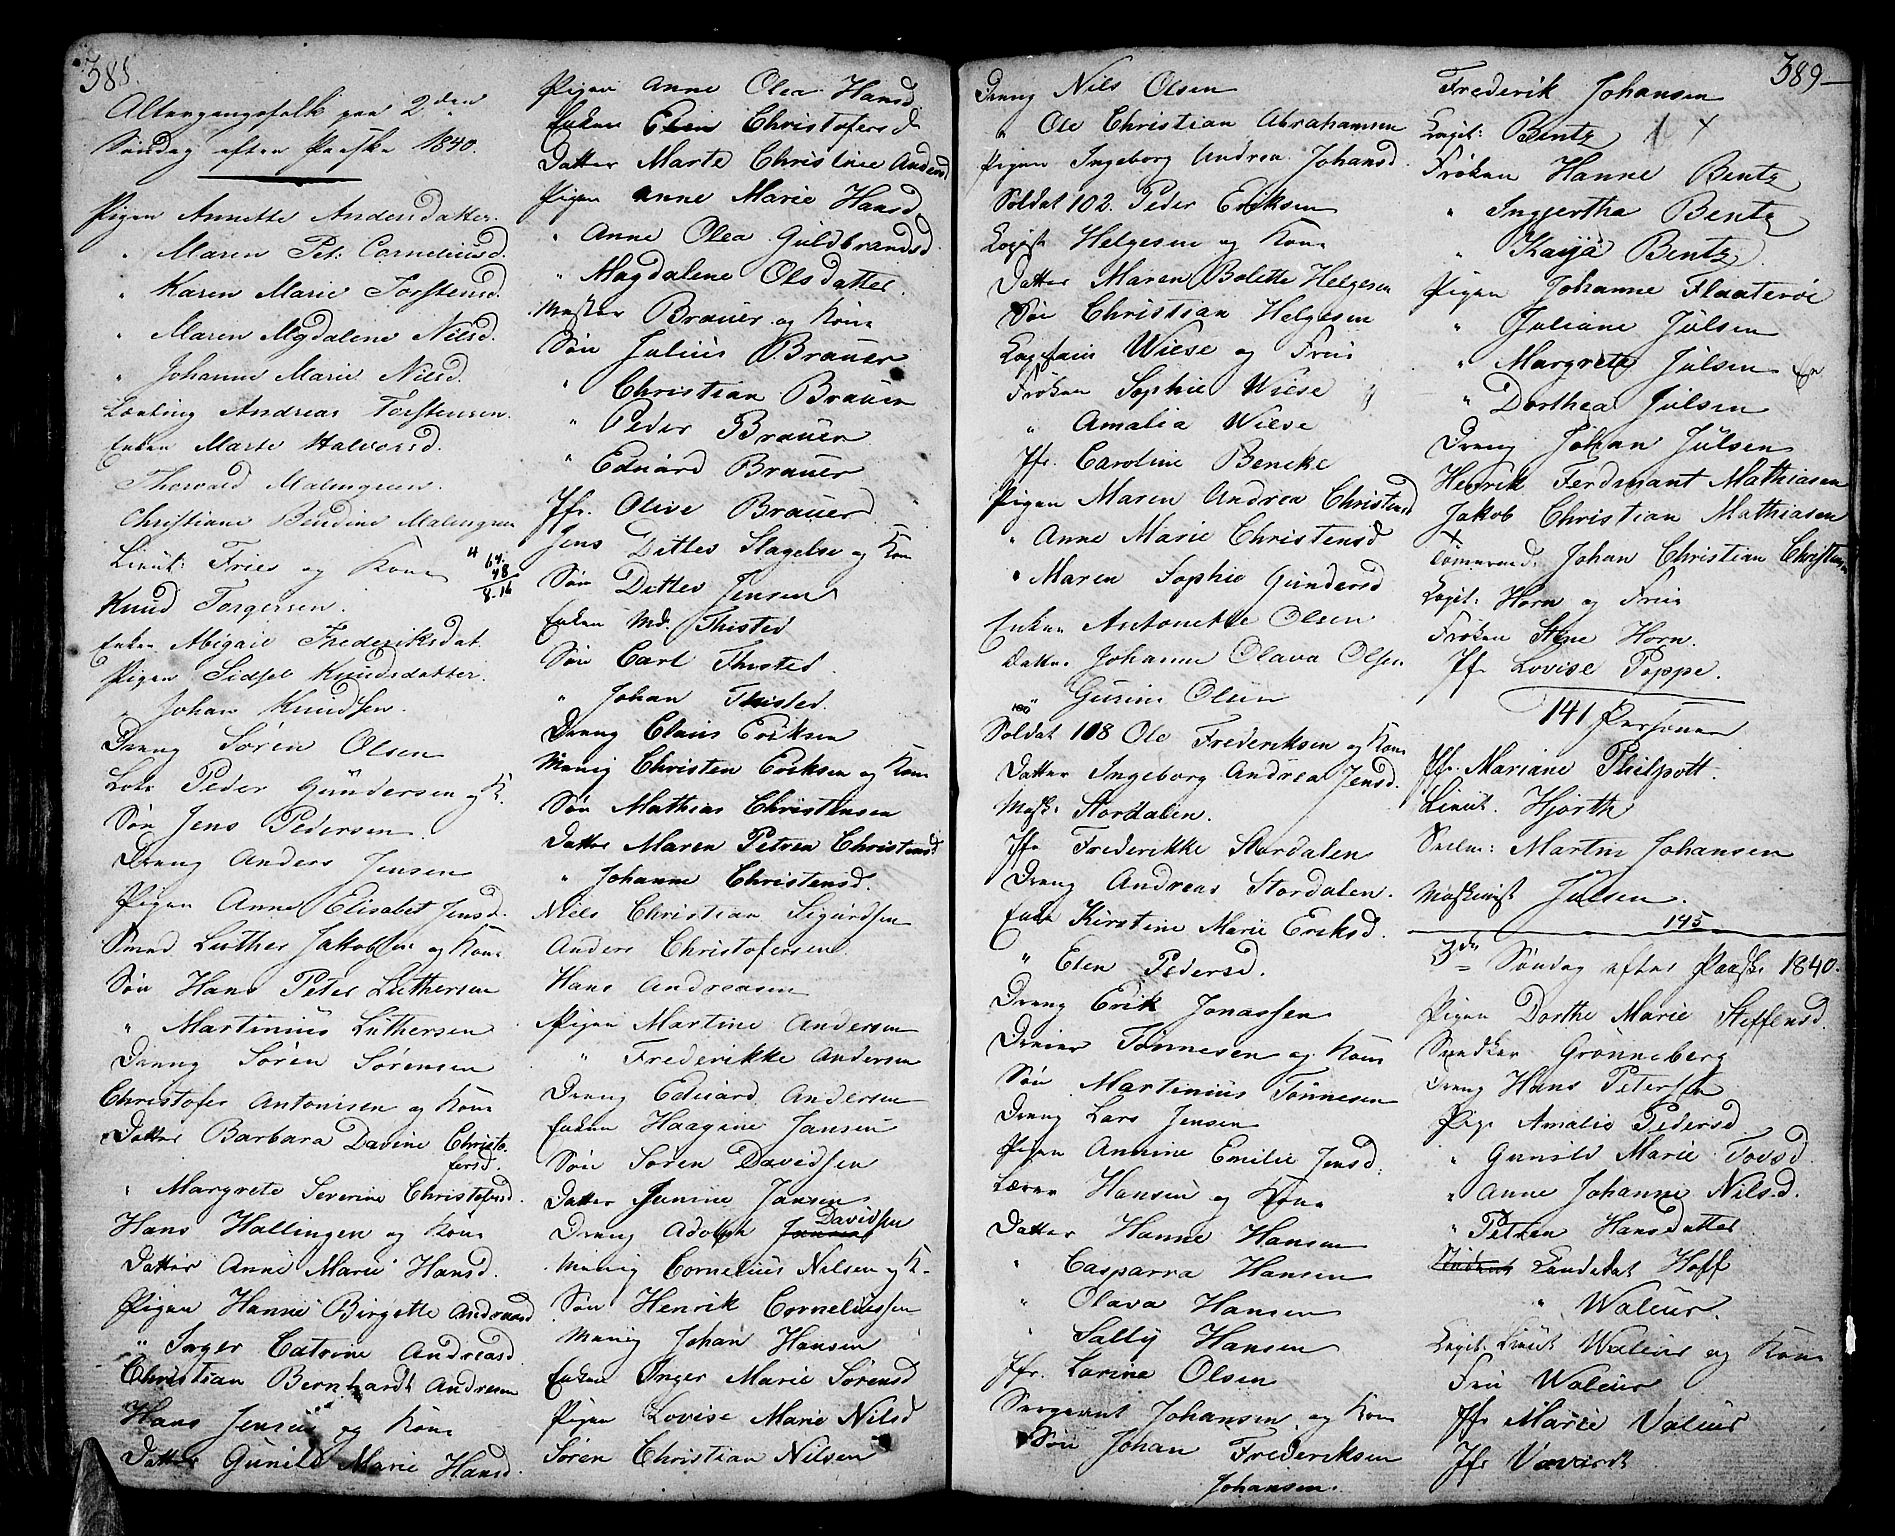 388.
Altergangsfolk paa 2den
Søndag efter Paaske 1840.
Pigen Annette Andersdatter.
" Maren Pet: Corneliusd.
" Karen Marie Torstensd.
" Maren Magdalene Nielsd.
" Johanne Marie Nilsd.
Lærling Andreas Torstensen.
Enken Marte Halvorsd.
Thorvald Malmgreen.
Christiane Bindine Malmgreen
Lieut: Fries og Kone
4 64.
48
8-16
Knud Torgersen.
Enken Abigael Frederiksdat.
Pigen Sidsel Knudsdatter.
" Johan Knudsen.
Dreng Søren Olsen
Lods Peder Gundersen og K.
Søn Jens Pedersen
Dreng Anders Jensen
Pigen Anne Elisabet Jensd.
Smed Luther Jakobsen og Kone
Søn Hans Peter Luthersen
" Martinius Luthersen
Dreng Søren Sørensen
Christofer Antonisen og Kone
Datter Barbara Davine Christo-
fersd.
" Margrete Severine Christofersd.
Hans Hallingen og Kone
Datter Anne Marie Hansd.
Pigen Hanne Birgitte Andreasd
" Inger Catrine Andreasd
Christian Bernhardt Andresen
Hans Jensen og Kone
Datter Gunild Marie Hansd.
Pigen Anne Olea Hansd.
Enken Elen Christofersd
Datter Marte Christine Andersd
Pigen Anne Marie Hansd
" Anne Olea Guldbrandsd.
" Magdalene Olsdatter.
Mester Brauer og Kone
Søn Julius Brauer
" Christian Brauer
" Peder Brauer
" Eduard Brauer
Jfr. Olive Brauer
Jens Ditlev Slagelse og Kone
Søn Ditlev Jensen
Enken Md. Thisted
Søn Carl Thisted
" Johan Thisted.
Dreng Claus Eriksen
Menig Christen Eriksen og Kone
Søn Mathias Christensen
Datter Maren Petrea Christensd
" Johanne Christensd.
Niels Christian Sigurdsen
Anders Christofersen
Hans Andreasen
Pigen Martine Andersen
" Frederikke Andersen
Dreng Eduard Andersen
Enken Haagine Jansen
Søn Søren Davidsen
Datter Junine Jansen
Davidsen
Dreng Adolph
Menig Cornelius Nilsen og K.
Søn Henrik Corneliussen
Menig Johan Hansen
Enken Inger Marie Sørensd
Pigen Lovise Marie Nilsd
Søren Christian Nilsen
389
Dreng Nils Olsen
" Ole Christian Abrahamsen
Pigen Ingeborg Andrea Johansd.
Soldat 102. Peder Eriksen
Helgesen og Kone
Datter Maren Bolette Helgesen
Søn Christian Helgesen
Captain Wiese og Frue
Frøken Sophie Wiese
" Amalia Wiese
Jfr. Caroline Bencke
Pigen Maren Andrea Christensd
" Anne Marie Christensd
" Maren Sophie Gundersd
Enken Antonette Olsen
Datter Johanne Olava Olsen
" Gusine Olsen
100
Soldat 108 Ole Frederiksen og Kone
Datter Ingeborg Andrea Jensd.
Mask: Stordalen.
Jfr Frederikke Stordalen
Dreng Andreas Stordalen.
Enke Kirstine Marie Eriksd.
" Elen Pedersd.
Dreng Erik Jonassen
Dreier Tønnesen og Kone
Søn Martinius Tønnesen
Dreng Lars Jensen
Pigen Annine Emilie Jensd.
Lærer Hansen og Kone
Datter Hanne Hansen
" Casparra Hansen
" Olava Hansen
" Sally Hansen
Jfr. Larine Olsen
Sergeant Johansen og Kone
Søn Johan Frederiksen
Johansen.
Frederik Johansen
Capit: Bentz 1 4
Frøken Hanne Bentz
" Inggertha Bentz
" Kaija Bentz
Pigen Johanne Flaaterøe
" Juliane Julsen
" Margrete Julsen
" Dorthea Julsen
Dreng Johan Julsen
Henrik Ferdinant Mathiasen
Jakob Christian Mathiasen
Tømmermd. Johan Christian Christensen
Capit: Horn og Frue
Frøken Stine Horn.
Jfr Lovise Poppe.
141 Personer
Jfr. Mariane Philpott.
Lieut. Hjorth
Martin Johansen
Maskinist Julsen.
145
3de Søndag efter Paaske 1840.
Pigen Dorthe Marie Steffensd.
Snedker Grønneberg
Dreng Hans Petersen
Pige Amalie Pedersd.
" Gunild Marie Tovsd.
" Anne Johanne Nilsd.
" Petrea Hansdatter
Student Candidat Hoff
" Waleur.
Capit: Lieut Waleur og Kone
Frue Waleur
Jfr Marie Valeur
Jfr Vavardt